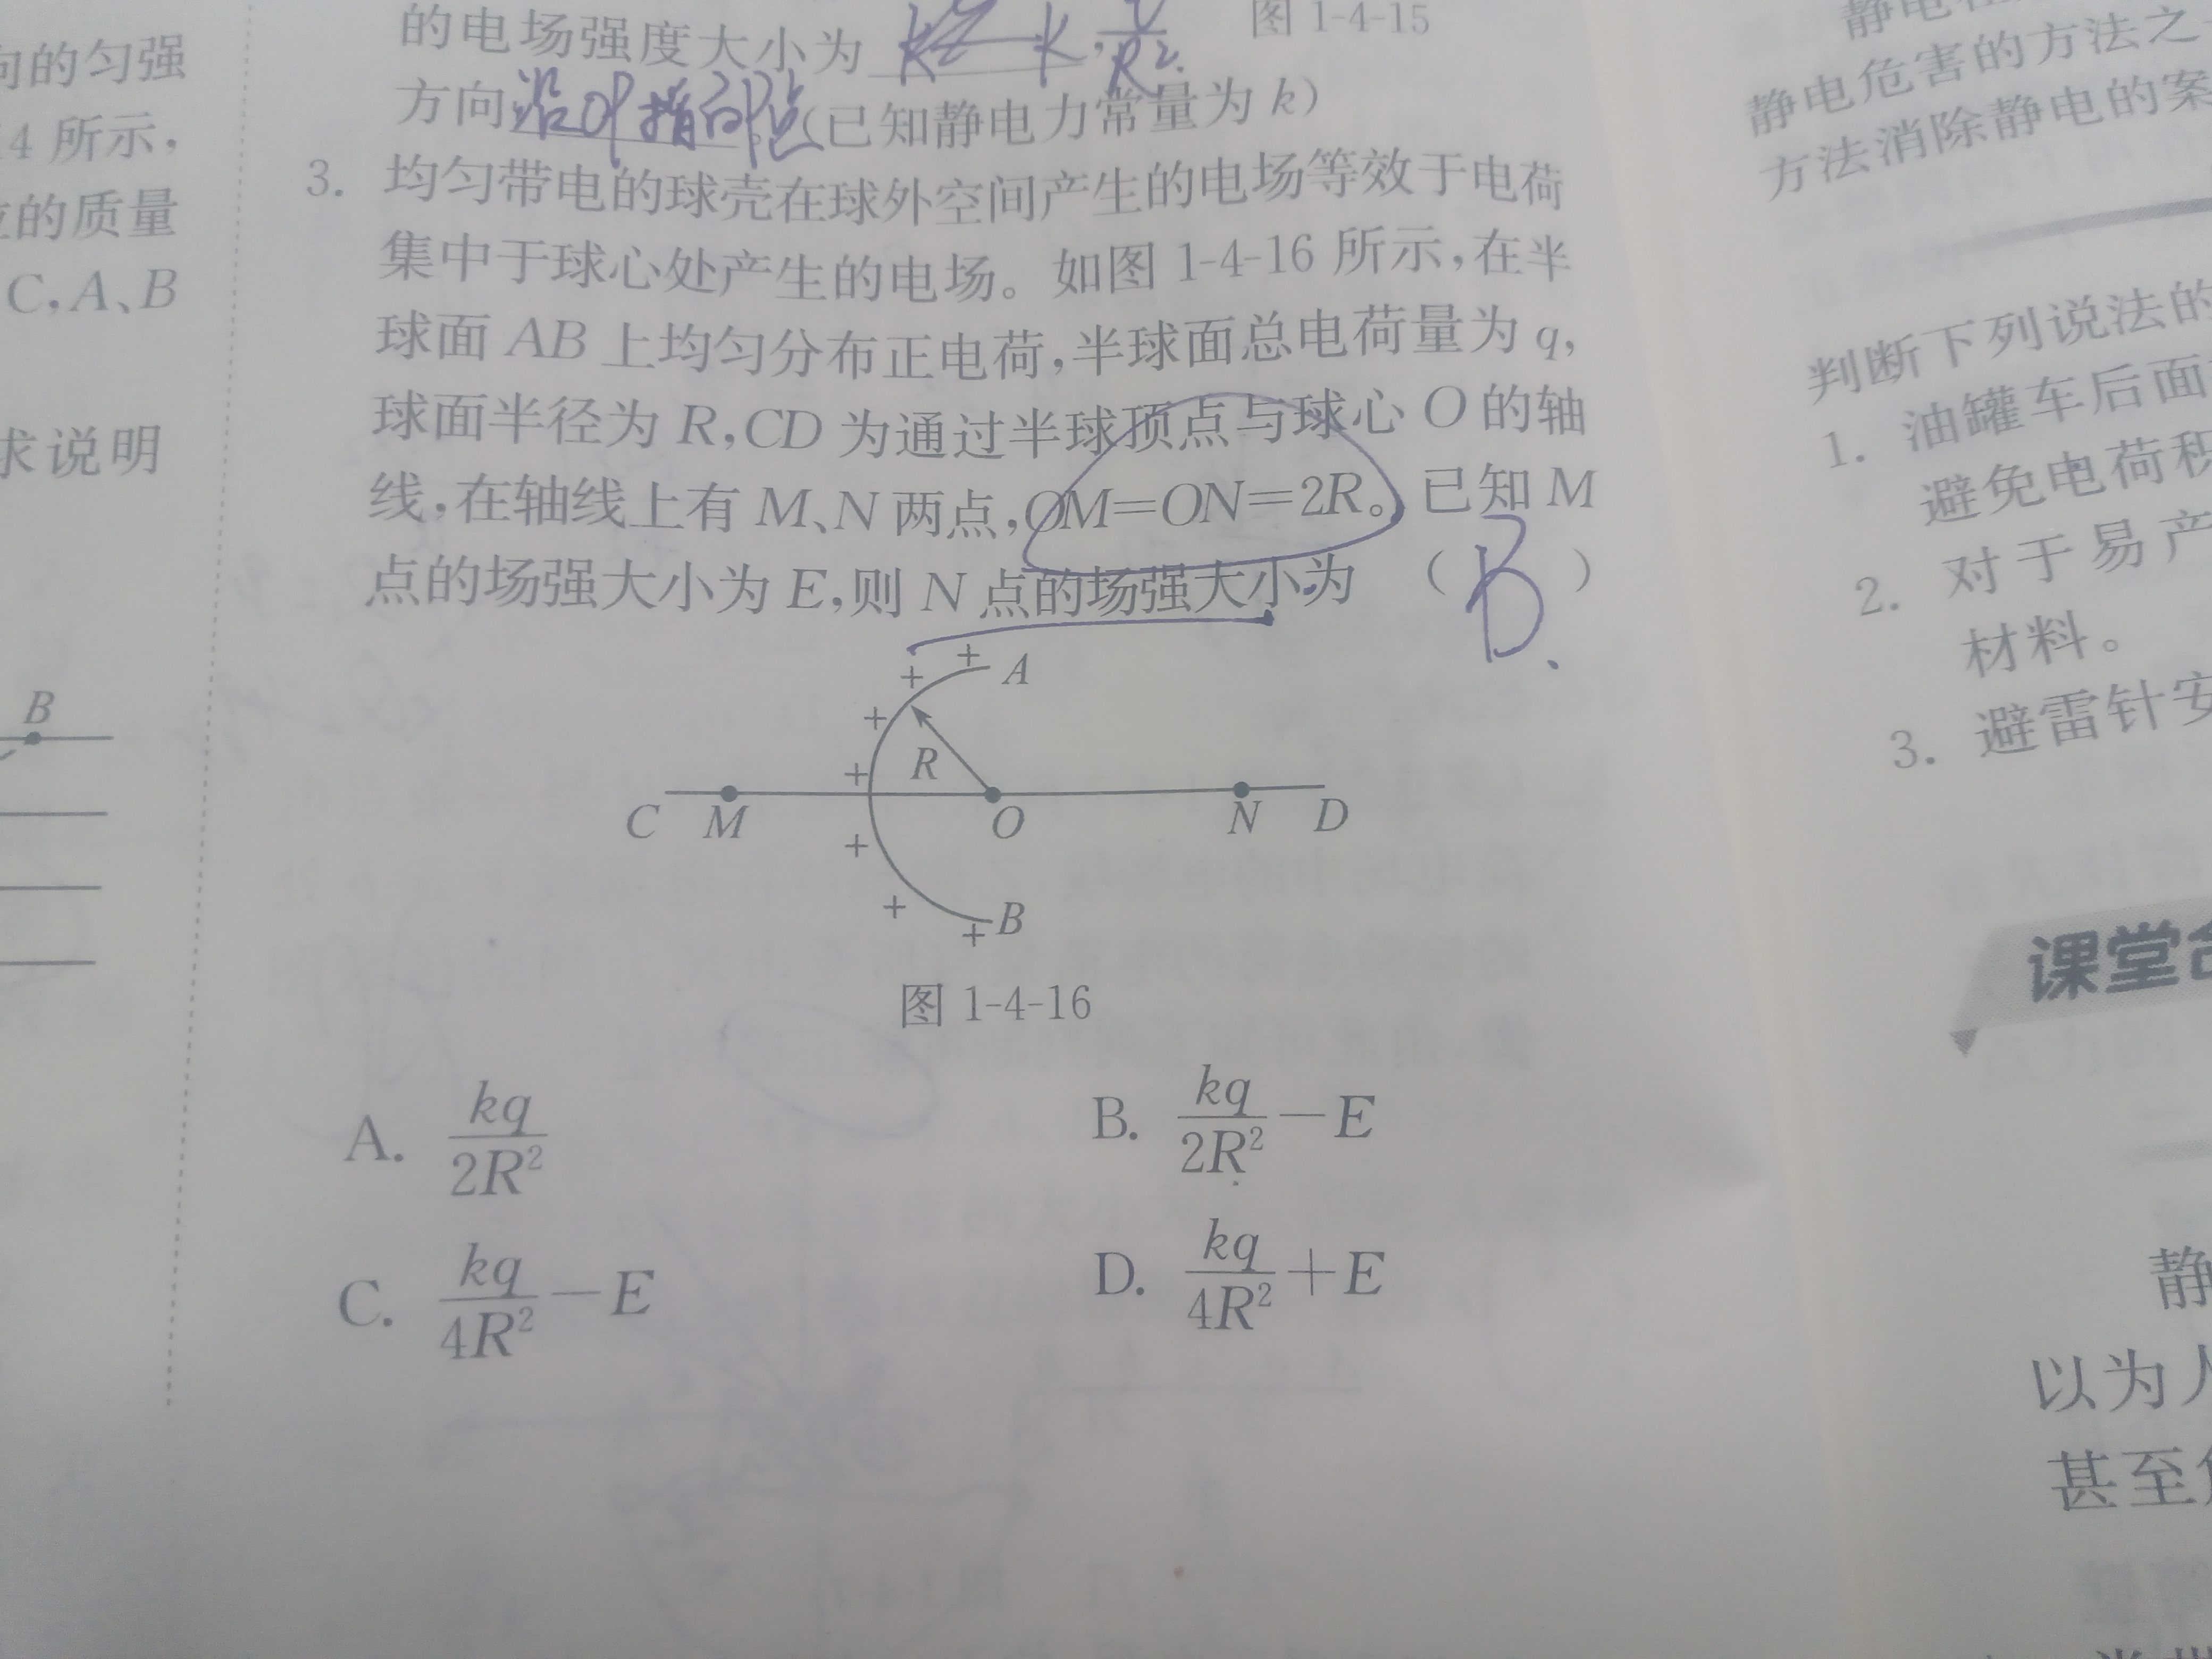 向的匀强
4 所示,
的质量
C,A、B
求说明
B
的电场强度大小为
R².
图 1-4-15
方向沿OP指向P点。(已知静电力常量为 k)
3. 均匀带电的球壳在球外空间产生的电场等效于电荷
集中于球心处产生的电场。如图 1-4-16 所示,在半
球面 AB 上均匀分布正电荷,半球面总电荷量为 q,
球面半径为 R,CD 为通过半球顶点与球心 O 的轴
线,在轴线上有 M、N 两点,OM=ON=2R。已知 M
点的场强大小为 E,则 N 点的场强大小为 ( B. )
+ + A
+
+ R
C M O N D
+
+
+ B
图 1-4-16
A. kq/2R²
B. kq/2R² − E
C. kq/4R² − E
D. kq/4R² + E
静电
静电危害的方法之
方法消除静电的案
判断下列说法的
1. 油罐车后面
避免电荷积
2. 对于易产
材料。
3. 避雷针安
课堂
静
以为人
甚至